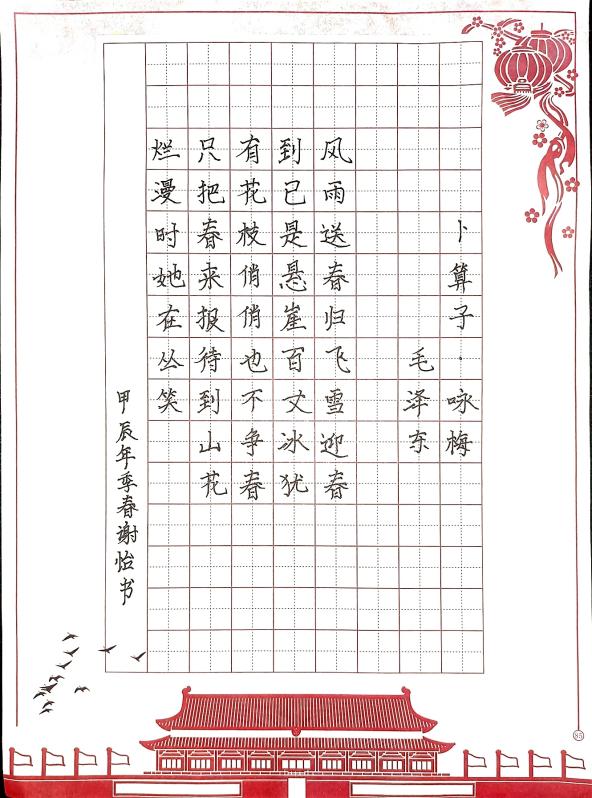 卜算子·咏梅
毛泽东
风雨送春归飞雪迎春
到已是悬崖百丈冰犹
有花枝俏俏也不争春
只把春来报待到山花
烂漫时她在丛笑
甲辰年季春谢怡书
85